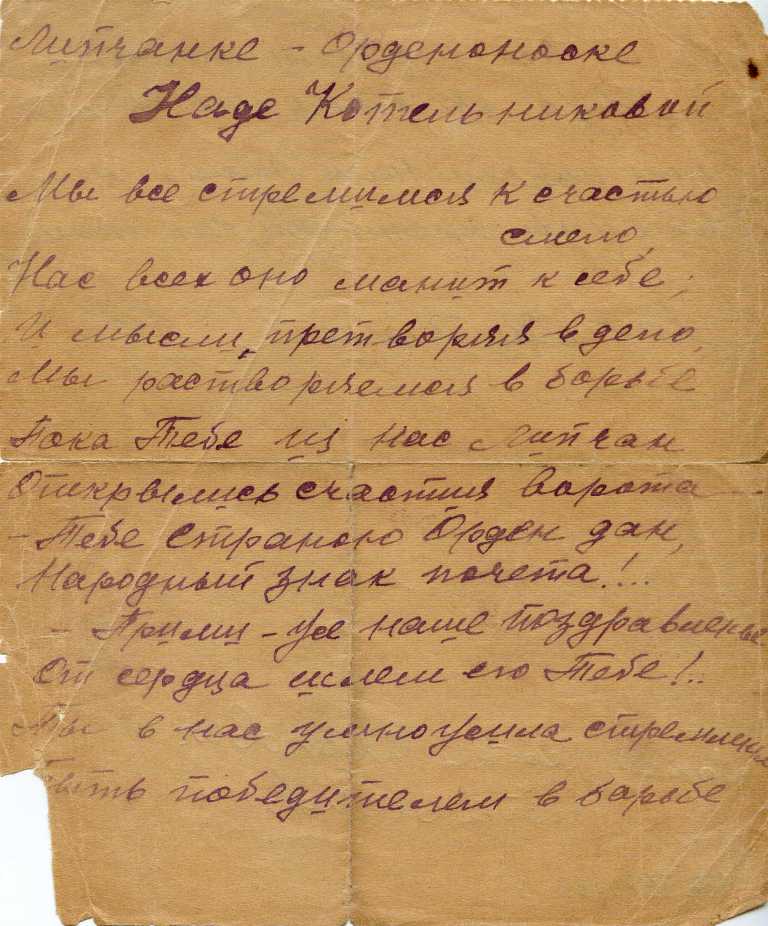 Липчанке - Орденоноске
Наде Котельниковой
Мы все стремимся к счастью
смело,
Нас всех оно манит к себе;
И мысли, претворяя в дело,
Мы растворяемся в борьбе
Пока Тебе из нас Липчан
Открылись счастия ворота -
- Тебе Страною Орден дан,
Народный знак почета!..
- Прими-же наше поздравленье
От сердца шлем его Тебе!..
Ты в нас умножила стремленье
Быть победителем в борьбе